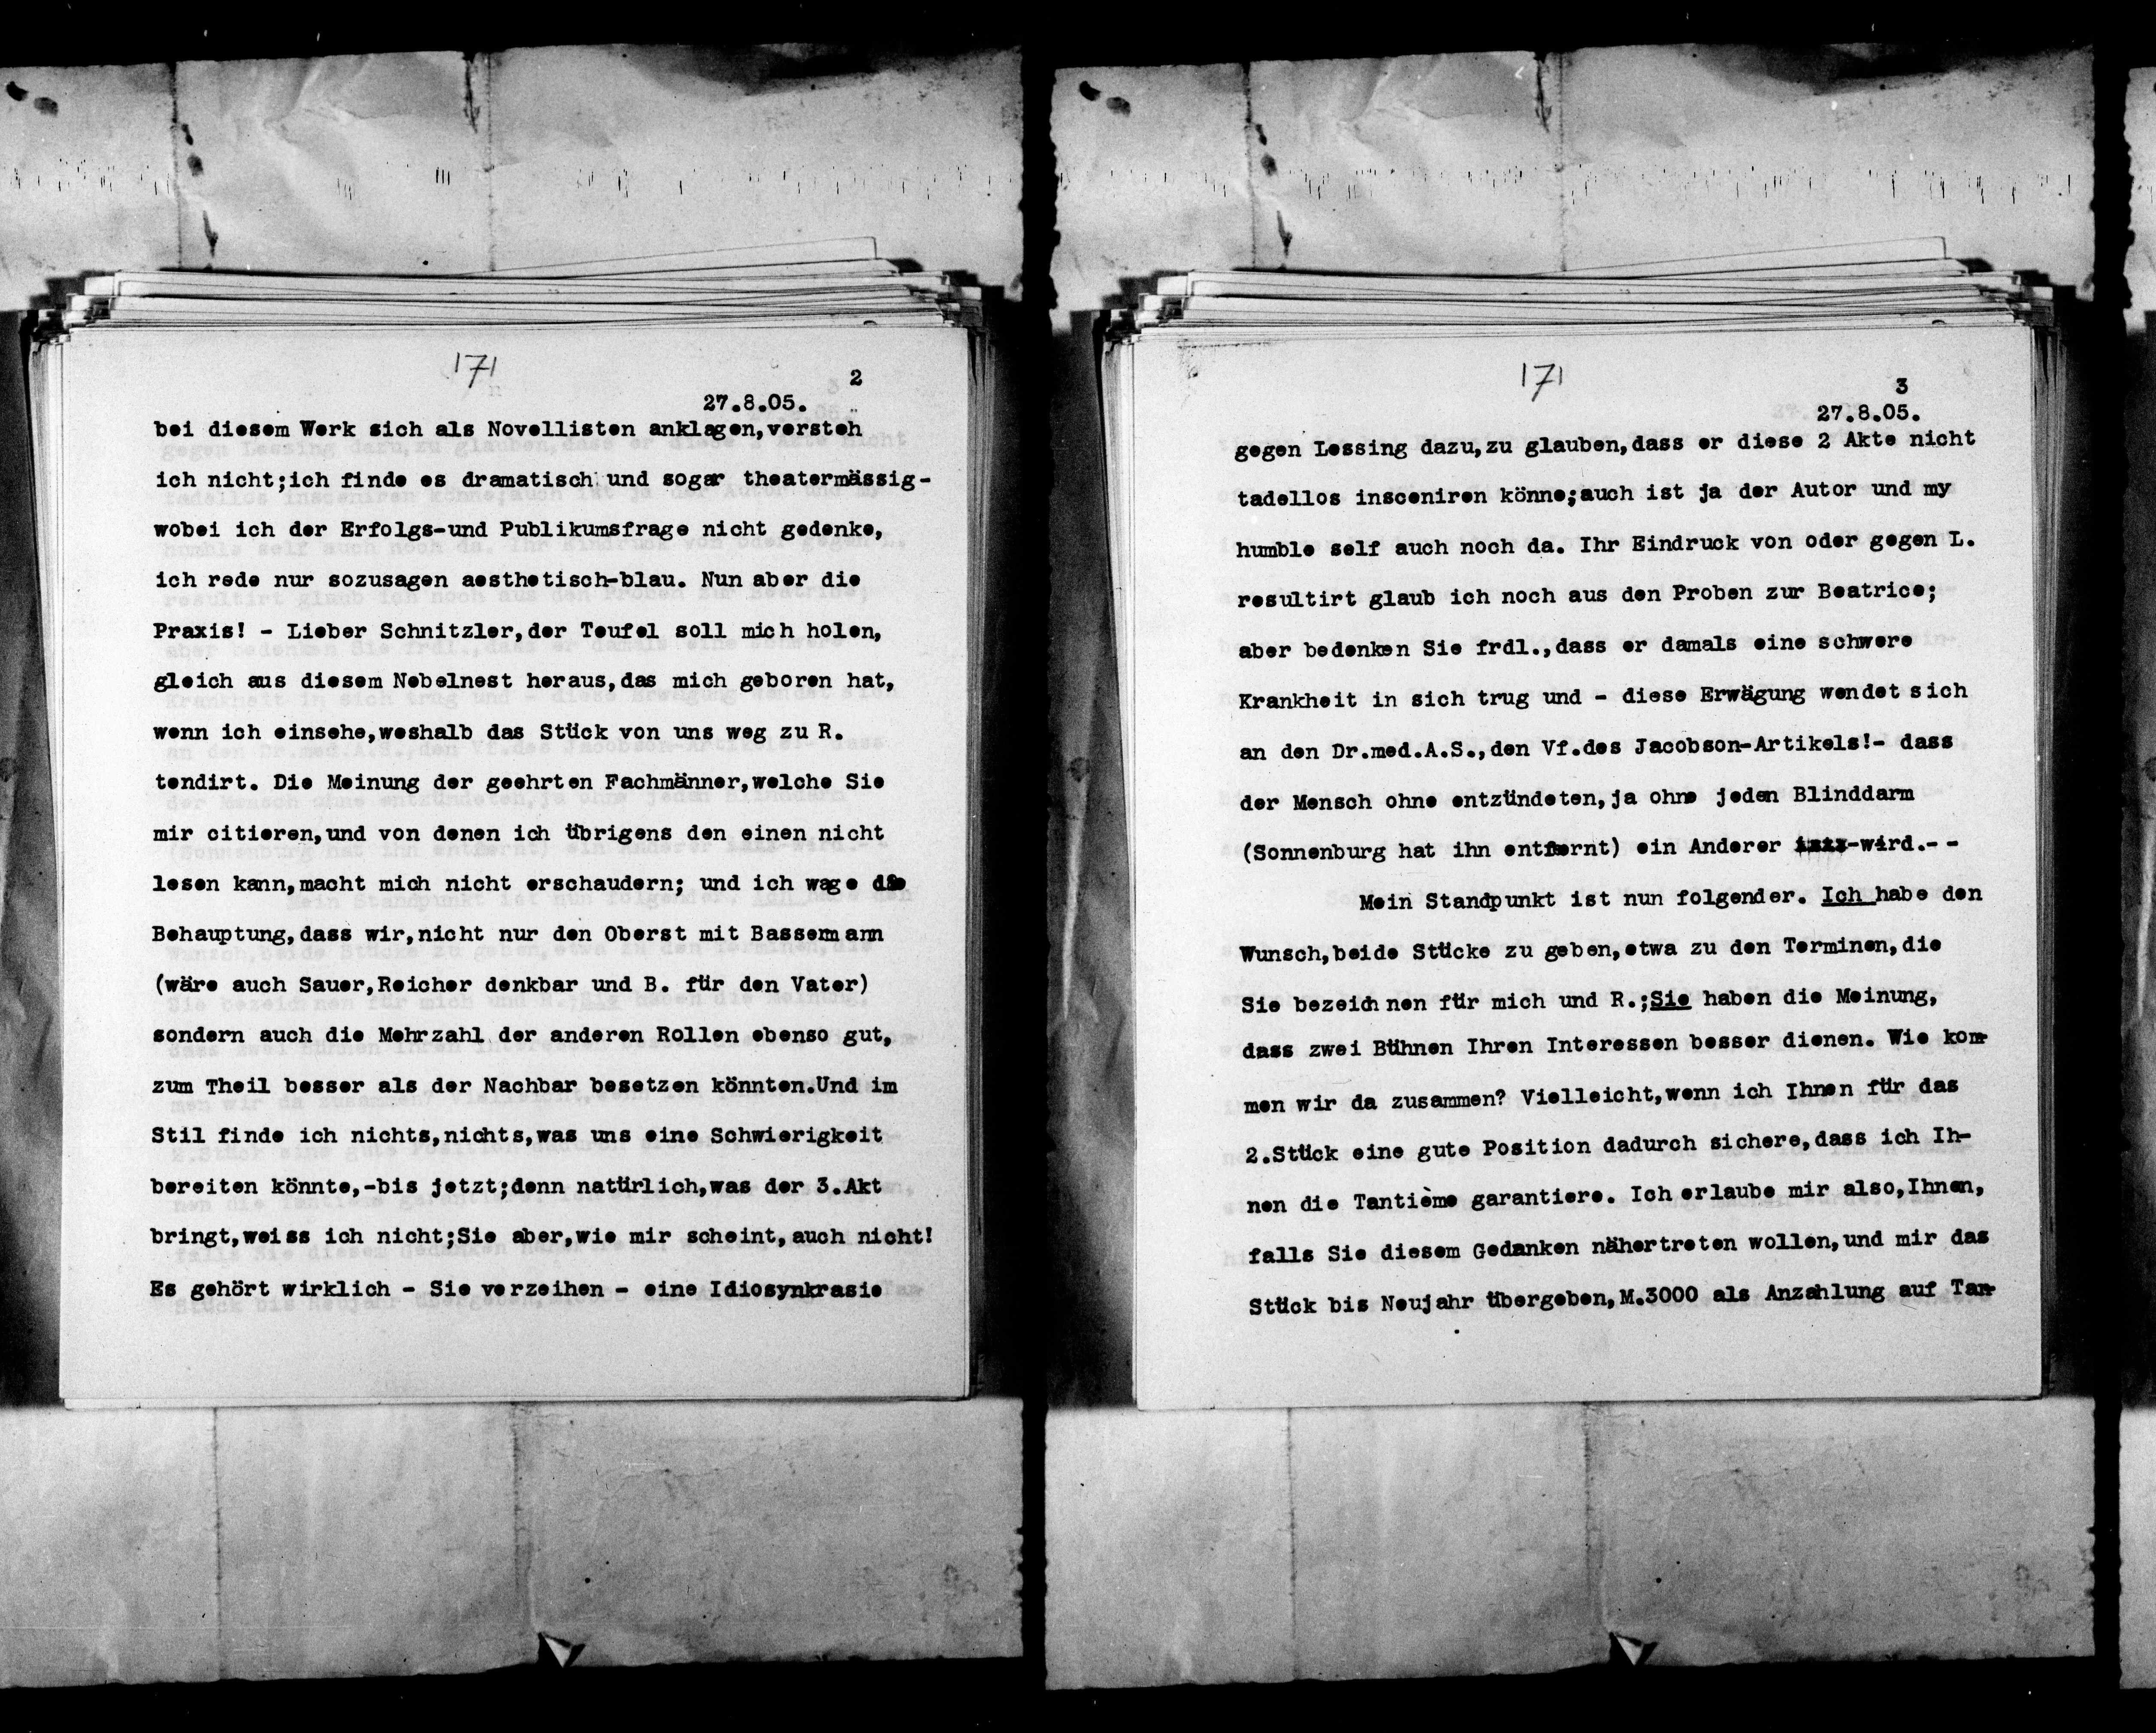 171
2
27.8.05.
bei diesem Werk sich als Novellisten anklagen,versteh
ich nicht;ich finde es dramatisch und sogar theatermässig-
wobei ich der Erfolgs-und Publikumsfrage nicht gedenke,
ich rede nur sozusagen aesthetisch-blau. Nun aber die
Praxis! - Lieber Schnitzler,der Teufel soll mich holen,
gleich aus diesem Nebelnest heraus,das mich geboren hat,
wenn ich einsehe,weshalb das Stück von uns weg zu R.
tendirt. Die Meinung der geehrten Fachmänner,welche Sie
mir citieren,und von denen ich übrigens den einen nicht
lesen kann,macht mich nicht erschaudern; und ich wage die
Behauptung,dass wir,nicht nur den Oberst mit Bassermann
(wäre auch Sauer,Reicher denkbar und B. für den Vater)
sondern auch die Mehrzahl der anderen Rollen ebenso gut,
zum Theil besser als der Nachbar besetzen könnten.Und im
Stil finde ich nichts,nichts,was uns eine Schwierigkeit
bereiten könnte,-bis jetzt;denn natürlich,was der 3.Akt
bringt,weiss ich nicht;Sie aber,wie mir scheint,auch nicht!
Es gehört wirklich - Sie verzeihen - eine Idiosynkrasie
171
3
27.8.05.
gegen Lessing dazu,zu glauben,dass er diese 2 Akte nicht
tadellos insceniren könne;auch ist ja der Autor und my
humble self auch noch da. Ihr Eindruck von oder gegen L.
resultirt glaub ich noch aus den Proben zur Beatrice;
aber bedenken Sie frdl.,dass er damals eine schwere
Krankheit in sich trug und - diese Erwägung wendet sich
an den Dr.med.A.S.,den Vf.des Jacobson-Artikels!- dass
der Mensch ohne entzündeten,ja ohne jeden Blinddarm
(Sonnenburg hat ihn entfernt) ein Anderer wird.- -
Mein Standpunkt ist nun folgender. Ich habe den
Wunsch,beide Stücke zu geben,etwa zu den Terminen,die
Sie bezeichnen für mich und R.;Sie haben die Meinung,
dass zwei Bühnen Ihren Interessen besser dienen. Wie kom-
men wir da zusammen? Vielleicht,wenn ich Ihnen für das
2.Stück eine gute Position dadurch sichere,dass ich Ih-
nen die Tantième garantiere. Ich erlaube mir also,Ihnen,
falls Sie diesem Gedanken nähertreten wollen,und mir das
Stück bis Neujahr übergeben,M.3000 als Anzahlung auf Tan-